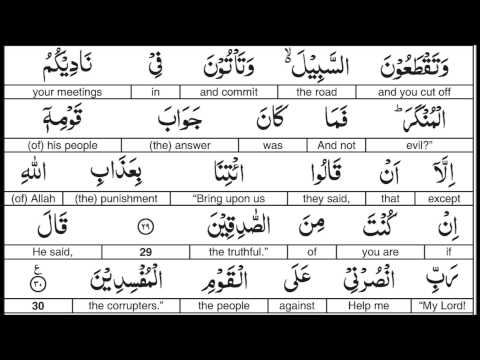 وَتَقْطَعُوْنَ السَّبِيْلَ ۙ وَتَاْتُوْنَ فِيْ نَادِيْكُمُ
your meetings in and commit the road and you cut off
الْمُنْكَرَ ؕ فَمَا كَانَ جَوَابَ قَوْمِهٖۤ
(of) his people (the) answer was And not evil?”
اِلَّاۤ اَنْ قَالُوا ائْتِنَا بِعَذَابِ اللّٰهِ
(of) Allah (the) punishment “Bring upon us they said, that except
اِنْ كُنْتَ مِنَ الصّٰدِقِيْنَ ۝٢٩ قَالَ
He said, 29 the truthful.” of you are if
رَبِّ انْصُرْنِيْ عَلَى الْقَوْمِ الْمُفْسِدِيْنَ ۝٣٠ ع
30 the corrupters.” the people against Help me “My Lord!